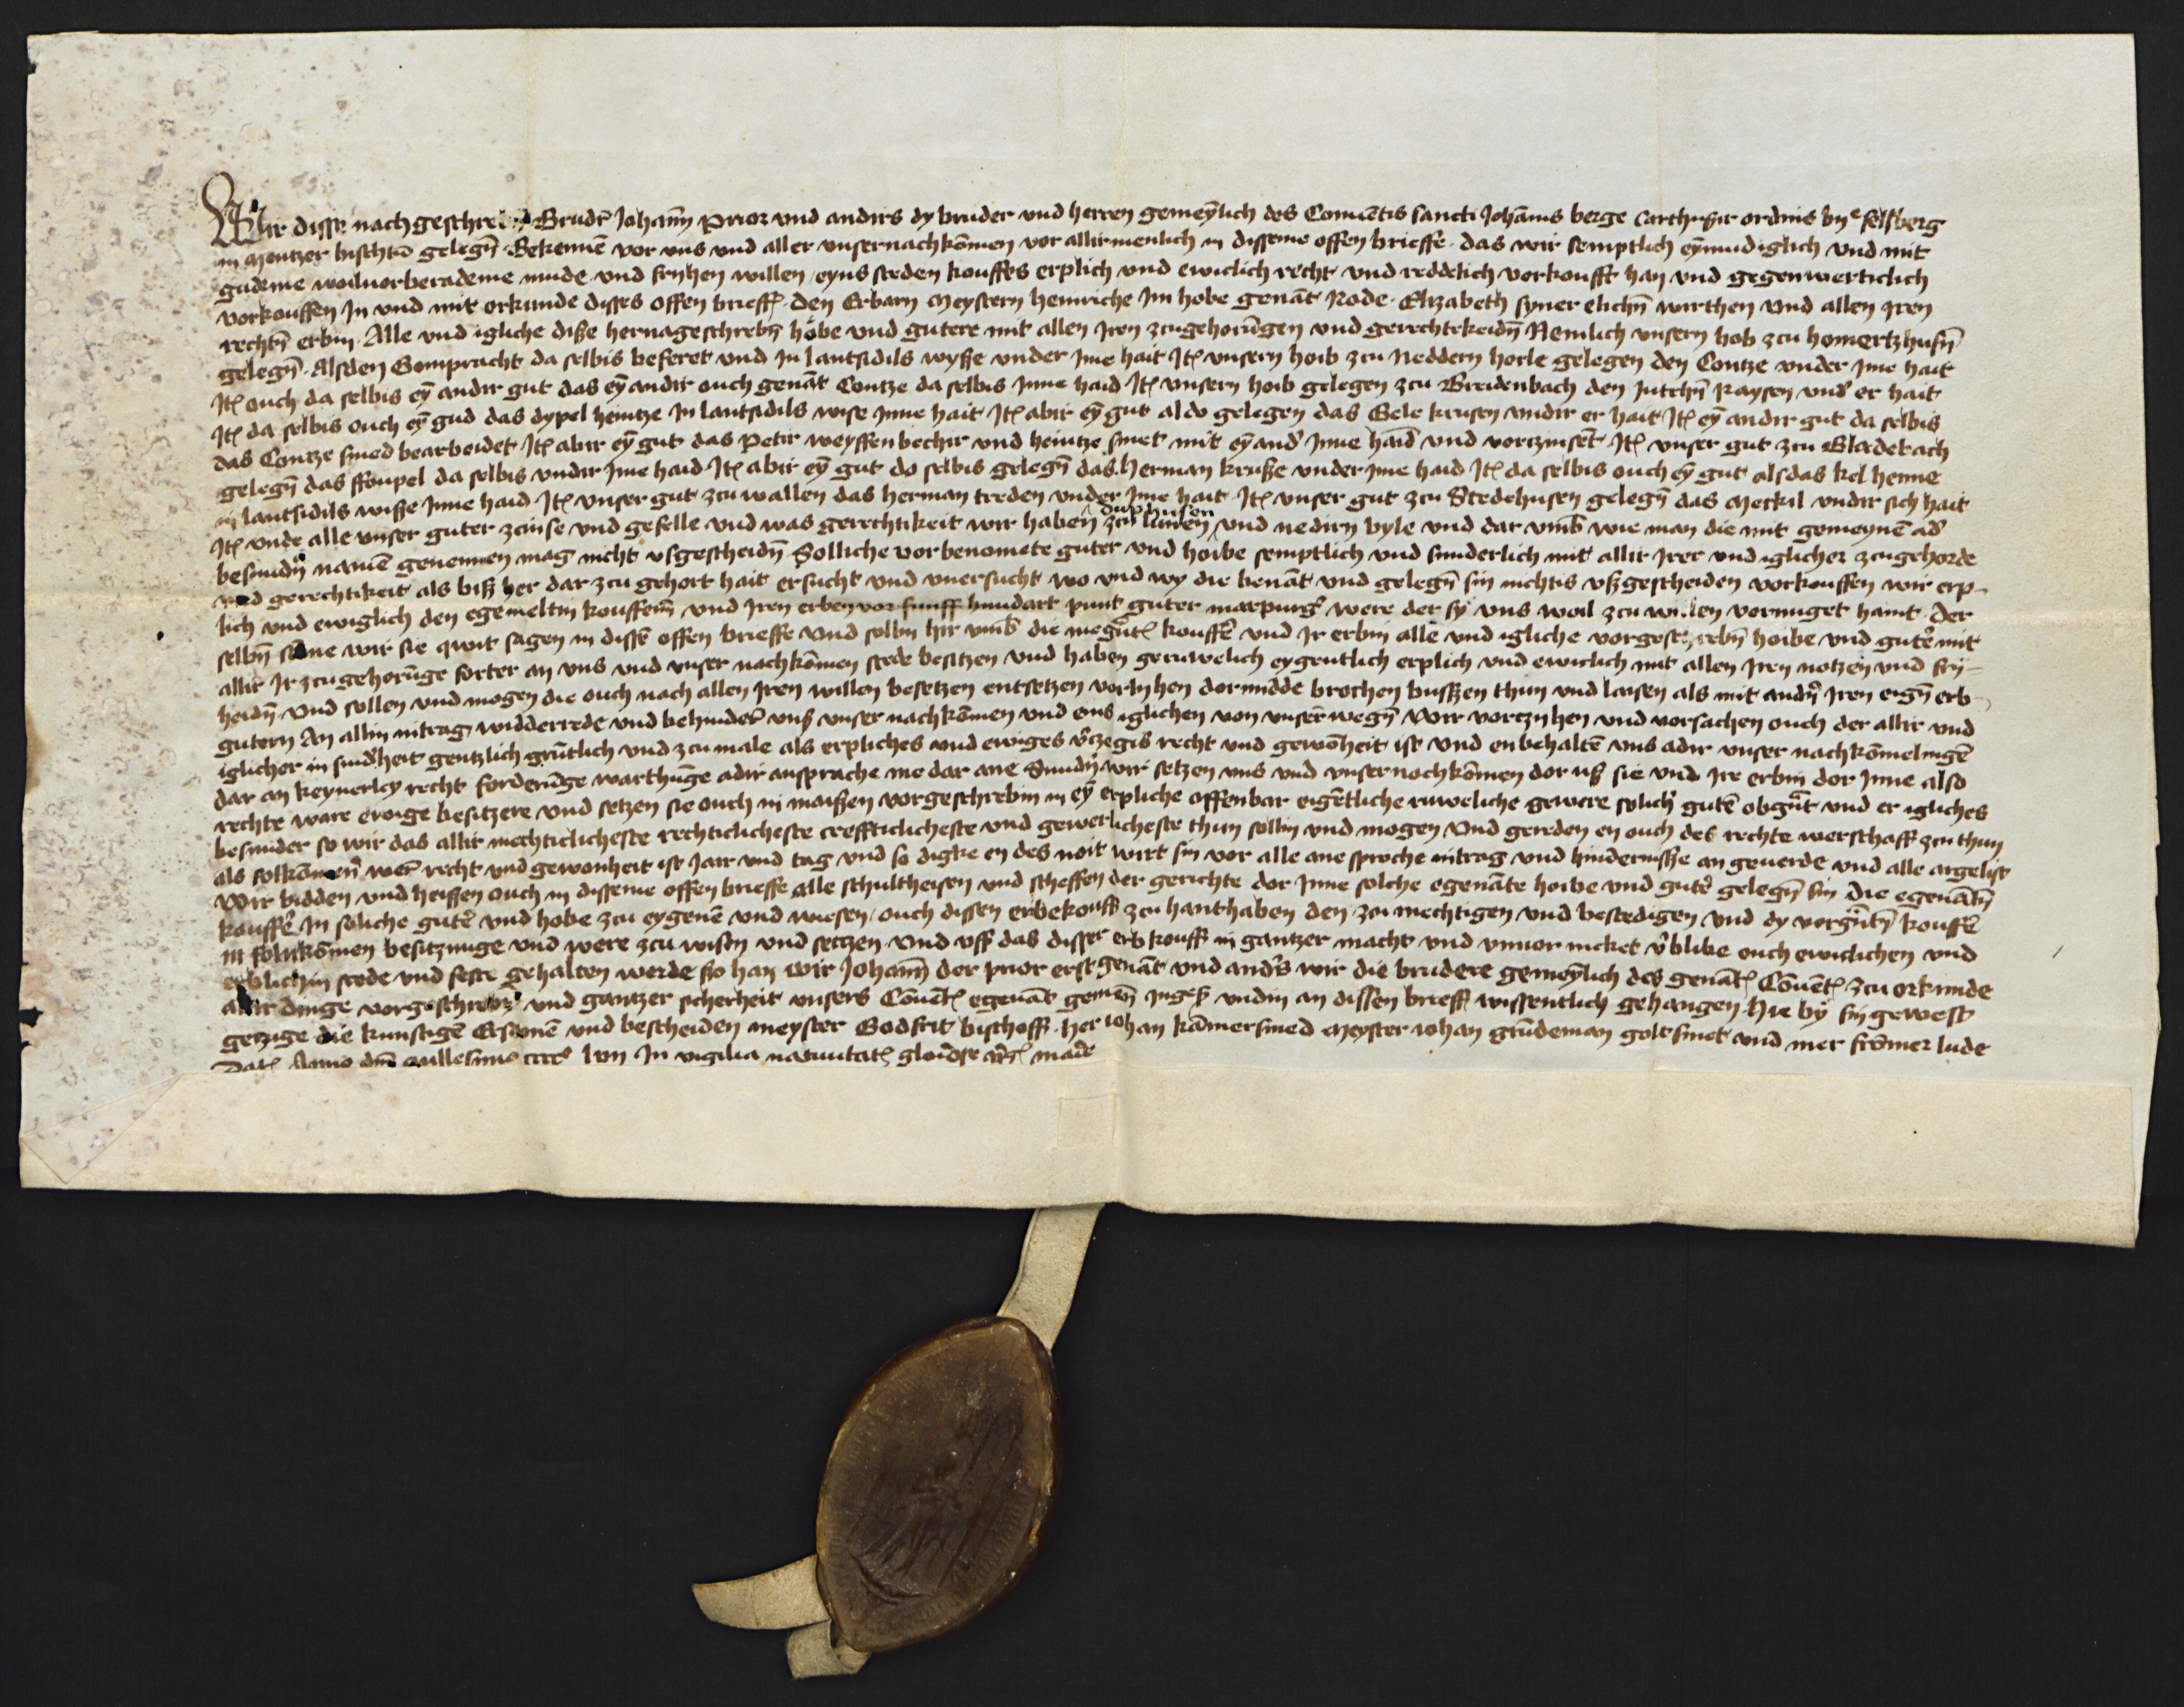 Wir disse nachgeschreben Brudr Johann Prior vnd andirs dy bruder vnd herren gemeynlich des Conuentis sancti Johannis berge Carthusir ordins by felsberg
in Mentzer bischtu gelegn Bekennen vor vns vnd aller vnser nachkomen vor allirmenlich in disseme offen brieffe das wir semptlich eynmudiglich vnd mit
gudeme woiluorberademe mude vnd fryhen willen eyns steden kouffes erplich vnd ewiclich recht vnd reddelich vorkoufft han vnd gegenwerticlich
vorkouffen In vnd mit orkunde disses offen brieffs den Erbarn Meystern heinriche Im hobe genant Rode Elizabeth syner elichn wirthen vnd allen Iren
rechtn erbin Alle vnd igliche diße hernageschrebn höbe vnd gutere mit allen Iren zcugehorungen vnd gerechtekeidn Nemlich vnsern hob zcu homertzhusn
gelegn Alsden Gompracht da selbis beseret vnd In lantsidils wyße vnder Ime hait Itm vnsern hoib zcu Neddern horle gelegen den Contze vnder Ime hait
Itm ouch da selbis eyn andir gut das eyn andir ouch genant Contze da selbis Inne haid Itm vnsern hoib gelegen zcu Breidenbach den Iutchn Kaysen vndr er hait
Itm da selbis ouch eyn gud das dypel heintze In lantsidils wise Inne hait Itm abir eyn gut aldo gelegen das Gele krusen vndir er hait Itm eyn andir gut da selbis
das Contze smed bearbeidet Itm abir eyn gut das Petir weyssenbechir vnd heintze smet mit eyn andr Inne haid vnd vorczinset Itm vnser gut zcu Gladebach
gelegn das stoupel da selbis vndir Ime haid Itm abir eyn gut do selbis gelegn das herman kruße vnder Ime haid Itm da selbis ouch eyn gut alsdas kel henne
in lantsidils wisse Inne haid Itm vnser gut zcu wallen das herman treden vnder Ime hait Itm vnser gut zcu Stedehusen gelegn das Merkil vndir sich hait
Itm vnde alle vnser guter zcinse vnd gefelle vnd was gerechtikeit wir haben zcu duphusen lunen vnd nedirn byle vnd dar vmb wie man die mit gemeynen adr
besundn namen genennen mag nicht vsgescheidn Solliche vorbenomete guter vnd hoibe semptlich vnd sunderlich mit allir Irer vnd iglicher zcugehorde
vnd gerechtikeit als biß her dar zcu gehort hait ersucht vnd vnersucht wo vnd wy die benant vnd gelegn sin nichtis vßgescheiden vorkouffen wir erp-
lich vnd ewiglich den egemeltin kouffern vnd Iren erben vor funff hundart punt guter marpurgr were der sy vns woil zcu willen vornuget haint Der
selbn sume wir sie qwit sagen in disse offen brieffe Vnd sollin hir vmb die megntn kouffer vnd Ir erbin alle vnd igliche vorgeschrebn hoibe vnd guter mit
allir Ir zcugehorunge forter an vns vnd vnser nachkomen stede besitzen vnd haben geruwelich eygentlich erplich vnd ewiclich mit allen Iren notzen vnd fry-
heidn Vnd sollen vnd mogen die ouch nach allen Iren willen besetzen entsetzen vorlyhen dormidde brechen bußen thun vnd laisen als mit andrn Iren eign erb-
gutern An allin intrag widderrede vnd behinder vnß vnser nachkomen vnd eins iglichen von vnser wegn Wir vortzyhen vnd vorsachen ouch der allir vnd
iglicher in sundrheit gentzlich gruntlich vnd zcumale als erpliches vnd ewiges vrczegis recht vnd gewonheit ist vnd enbehalten vns adir vnser nachkomelingen
dar an keynerley recht forderunge warthunge adir ansprache me dar ane Sundn wir setzen vns vnd vnser nochkomen dor uß sie vnd Ire erbin dor Inne also
rechte ware ewige besitzere vnd setzen sie ouch in maißen vorgeschrebin in eyn erpliche offenbar eigentliche ruweliche gewere solichr guter obgnt vnd er igliches
besunder so wir das allir mechticlicheste rechticlicheste crefftticlicheste vnd gewerlicheste thun sollin vnd mogen Vnd gereden en ouch des rechte werschaff zcu thun
als folkomen wer recht vnd gewonheit ist Iair vnd tag vnd so digke en des noit wirt sin vor alle ane sproche intrag vnd hindernisße an geuerde vnd alle argelist
Wir bidden vnd heissen ouch in disseme offen brieffe alle schultheisen vnd scheffen der gerichte dor Inne solche egenante hoibe vnd guter gelegn sin die egenantn
kouffer In soliche guter vnd hobe zcu eygene vnd wiesen ouch dissen erbekouff zcu hanthaben den zcu mechtigen vnd bestedigen vnd dy vorgntn kouffer
in folnkomen besitzunge vnd were zcu wisin vnd setzen Vnd vff das disser erbkouff in gantzer macht vnd vnuornicket vrblibe ouch ewiclichen vnd
erblichin stede vnd feste gehalten werde so han wir Johann der prior erst genant vnd andrs wir die brudere gemeynlich des genanten Couents zcu orkunde
allir dinge vorgeschrebn vnd gantzer sicherheit vnsers Couents egenant gemein Ingesß vndin an dissen brieff wissentlich gehangen Hie by sin gewest
getzige die kunstigen Ersamen vnd bescheiden meyster Godfrit bischoff her Iohan kamersmed Meyster Iohan grudeman goltsmet vnd mer fromer lude
Datum Anno dm Millesimo cccco lvii In vigilia natiuitats gloiose vgs marie